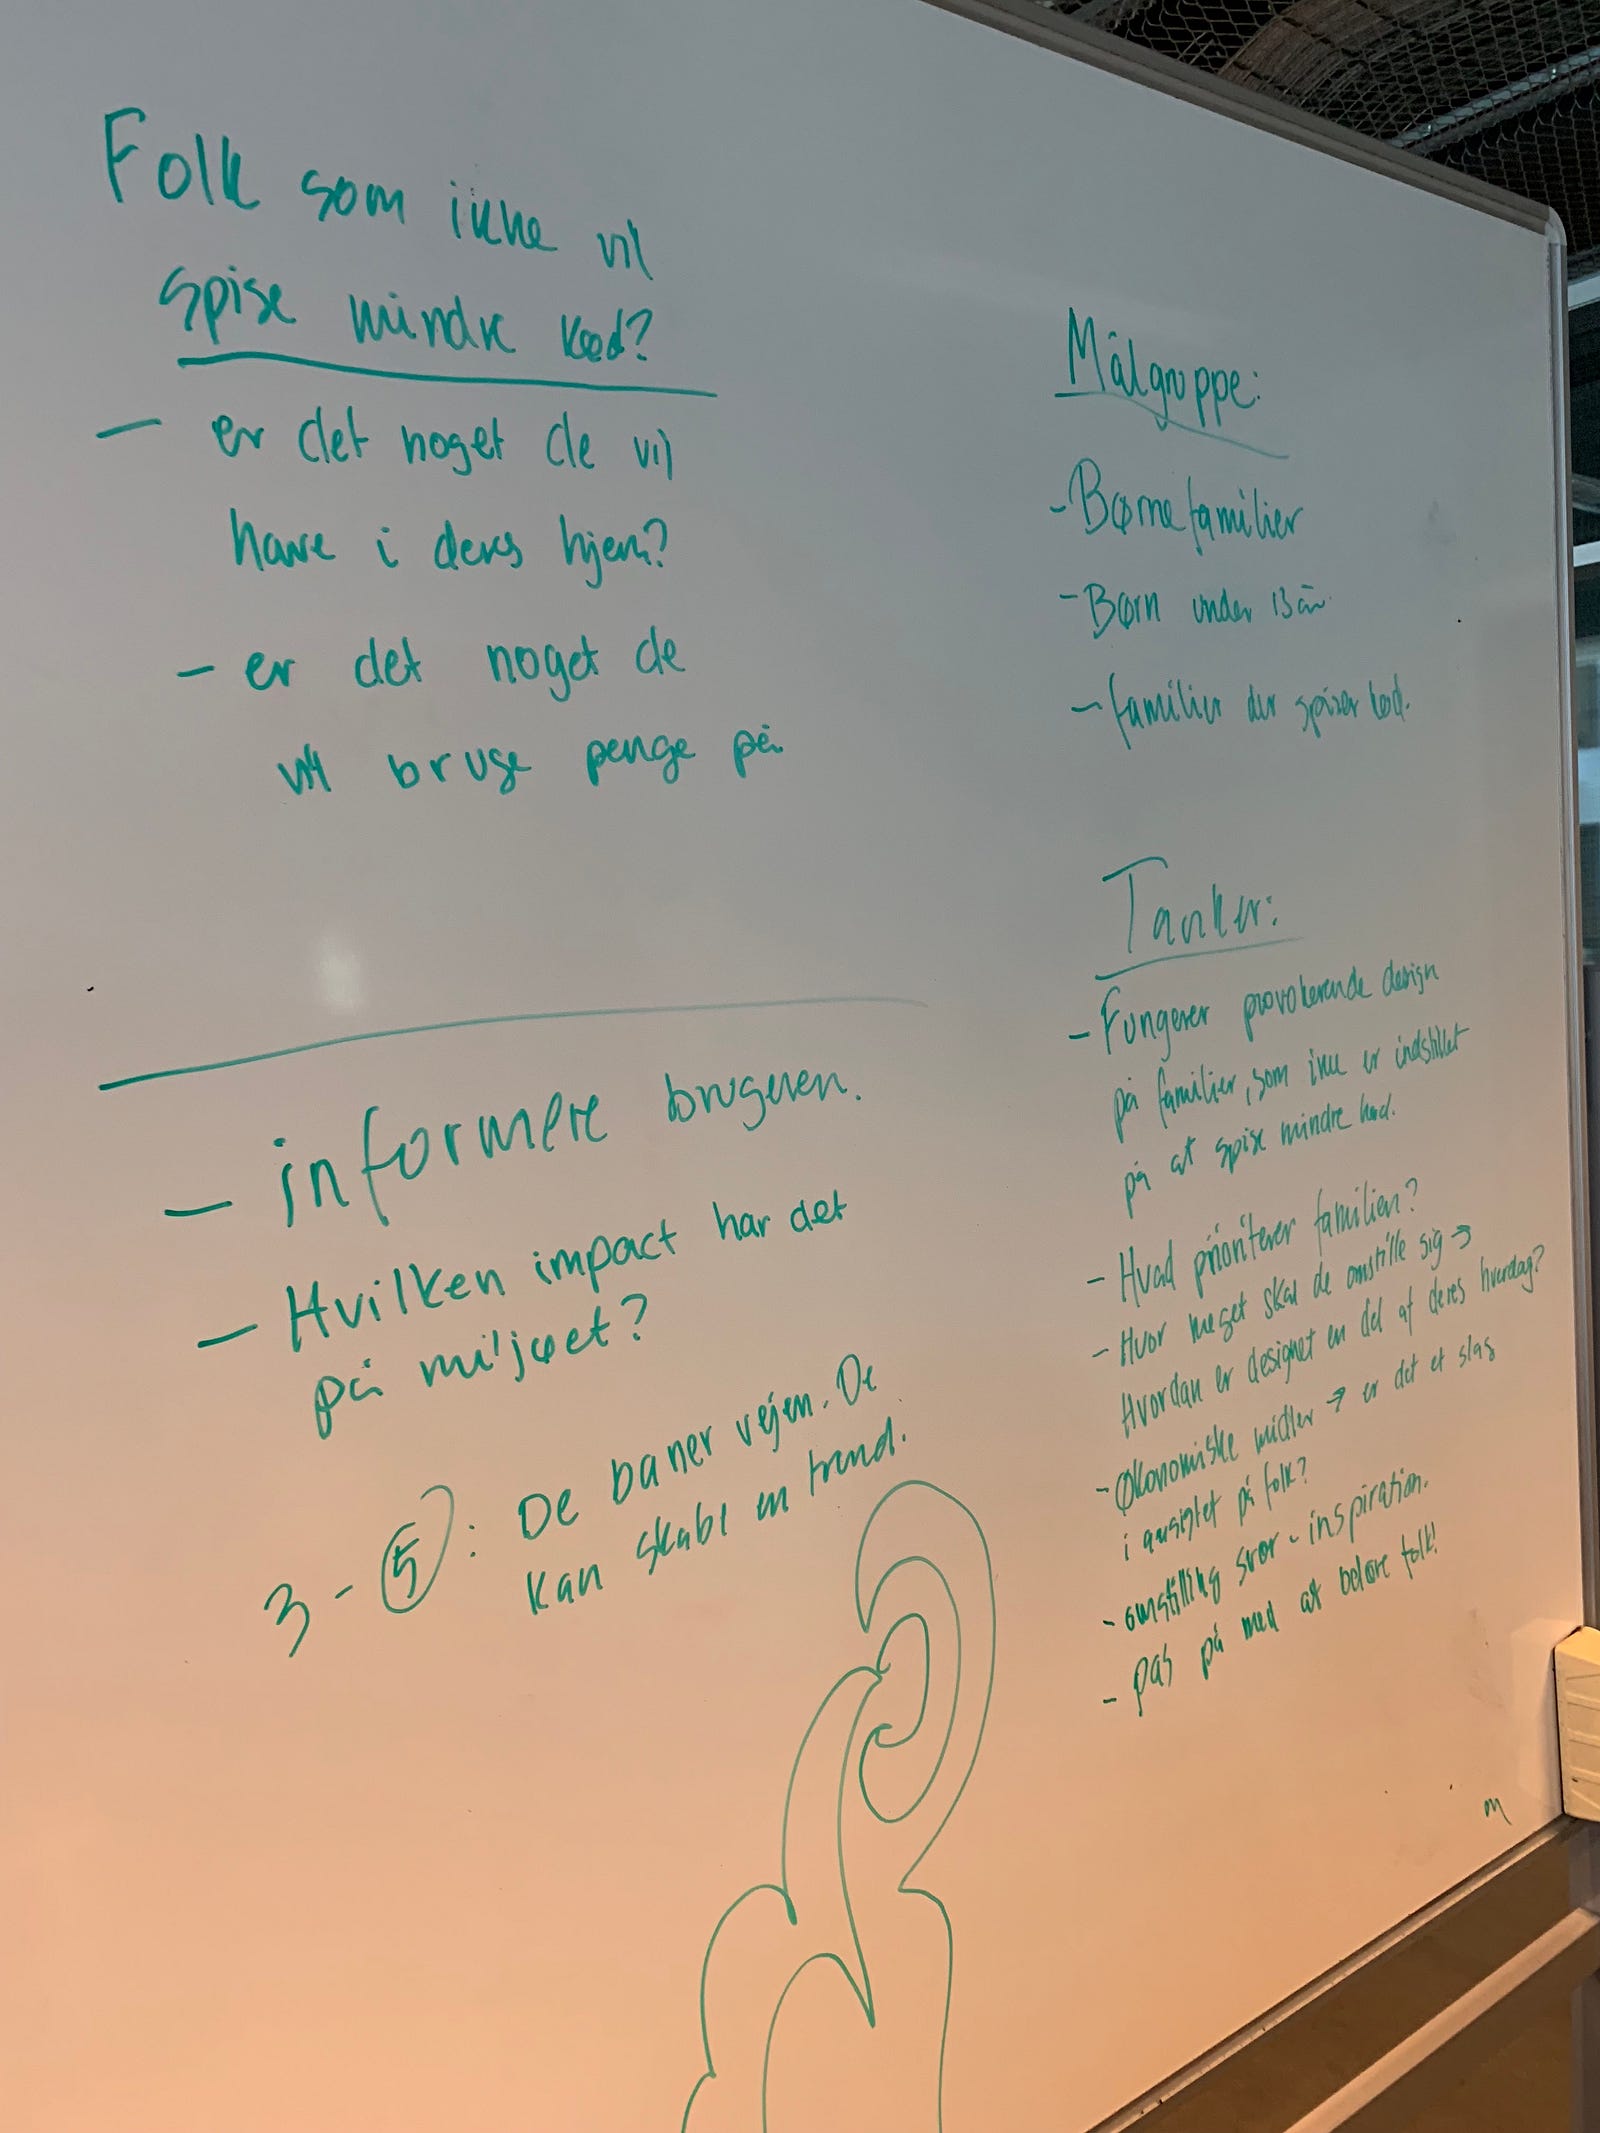 Folk som ikke vil
spise mindre kød?
- er det noget de vil
have i deres hjem?
- er det noget de
vil bruge penge på
- informere brugeren.
- Hvilken impact har det
på miljøet?
3 - 5 : De baner vejen. De
kan skabe en trend.
Målgruppe:
- Børnefamilier
- Børn under 13 år.
- familier der spiser kød.
Tanker:
- Fungerer provokerende design
på familier, som ikke er indstillet
på at spise mindre kød.
- Hvad prioriterer familien?
- Hvor meget skal de omstille sig →
Hvordan er designet en del af deres hverdag?
- Økonomiske midler → er det et slag
i ansigtet på folk?
- omstilling svær - inspiration.
- pas på med at belære folk!